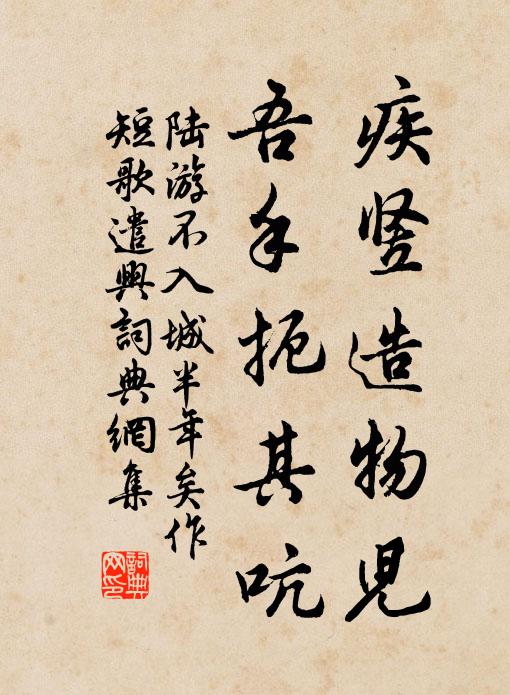 疾竖造物児
吾手扼其吭
陆游不入城半年矣作
短歌遣興詞典網集
詞典
网印